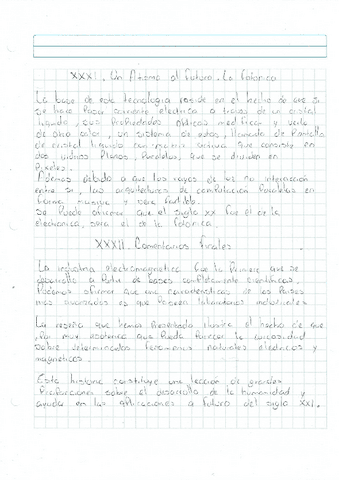 XXXI. Un Atomo al Futuro. La Fotonica
La base de esta tecnologia reside en el hecho de que si
se hace pasar corriente electrica a traves de un cristal
liquido, sus propiedades opticas se modifican y verle
de otro color, un sistema de estos, llamada de Pantalla
de cristal liquido con matriz activa que consiste en
dos vidrios planos, paralelos, que se dividen en
pixeles.
Ademas debido a que los rayos de luz no interaccion
entre si, las arquitecturas de computacion Paralelas en
forma masiva y
Se Puede afirmar que el siglo XX fue el de la
electronica, sera el de la fotonica.
XXXII. Comentarios finales
La industria electromagnetica fue la Primera que se
desarrollo a Partir de bases completamente cientificas,
Podemos afirmar que una caracteristicas de los Paises
mas avanzados es que Poseen laboratorios industriales
La reseña que hemos Presentado ilustra el hecho de que
Por muy esoterica que Pueda Parecer la curiosidad
sobre determinados fenomenos naturales electricos y
magneticos.
Esta historia constituye una leccion de grandes
Proporciones sobre el desarrollo de la humanidad y
ayuda en las aplicaciones a futuro del siglo XXI.